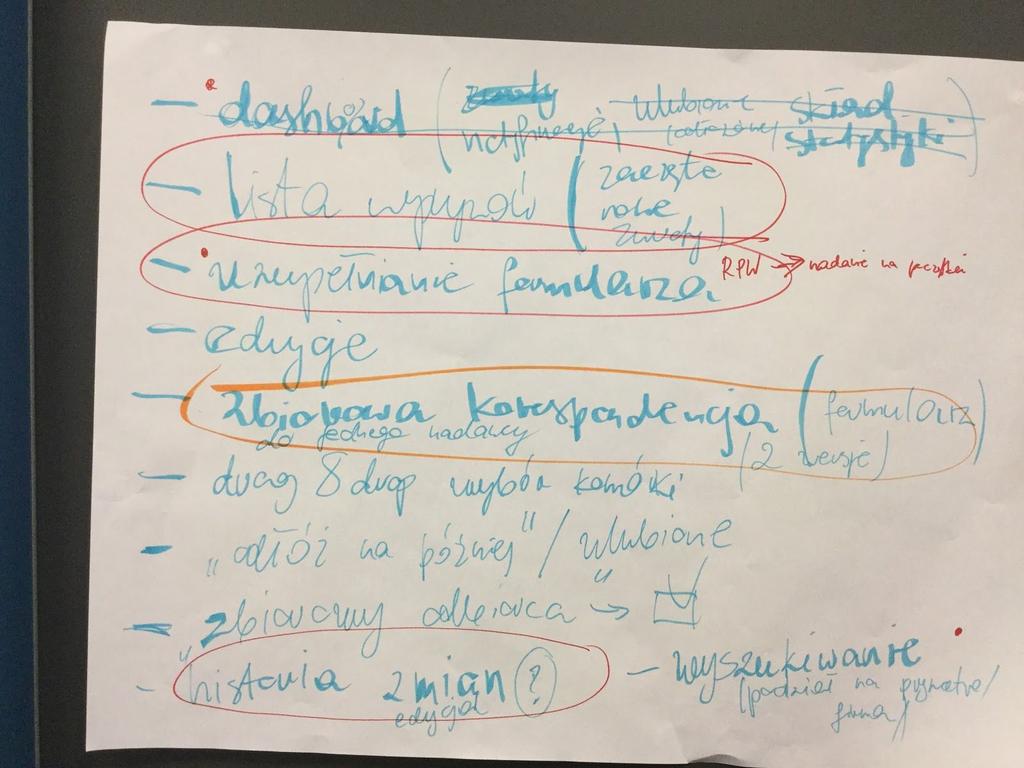 - dashboard (zwroty ulubione skład
notyfikacje) (odłożone) statystyki)
- lista wpływów (zaczęte
nowe
zwroty)
- uzupełnianie formularza RPW → nadanie na początki
- edycje
- zbiorowa korespondencja (formularz)
do jednego nadawcy (2 wersje)
- drag & drop wybór komórki
- "odłóż na później" / ulubione
- "zbiorowy odbiorca" →
- historia zmian ?
edycja
- wyszukiwanie
(podział na prywatne/
firma)